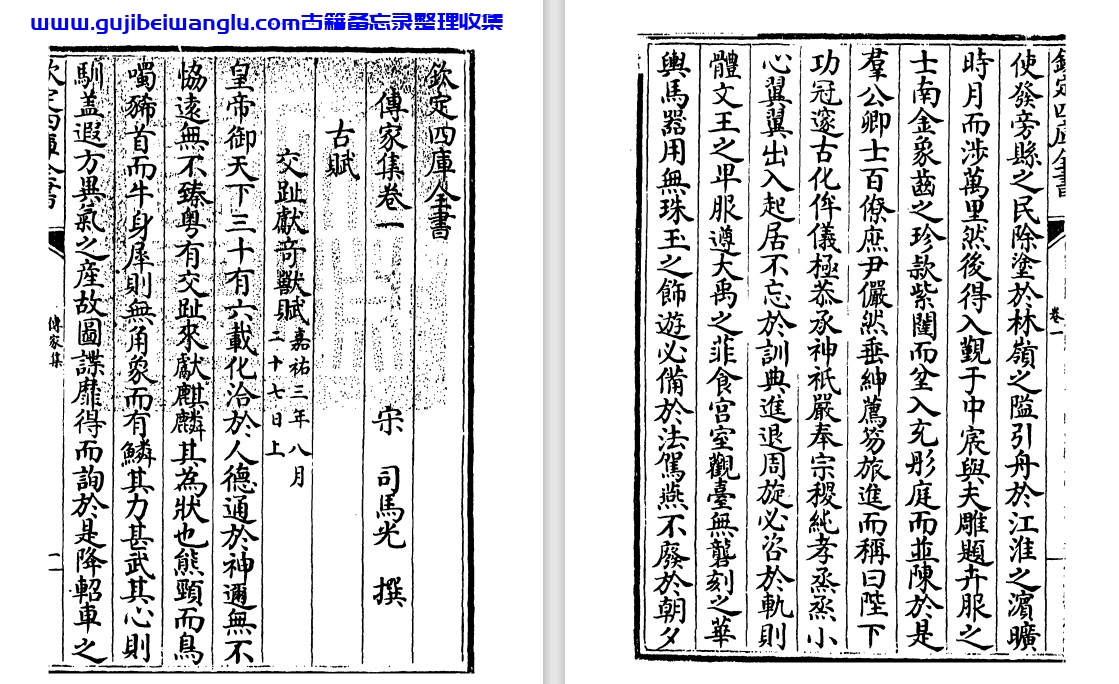 www.gujibeiwanglu.com古籍备忘录整理收集
欽定四庫全書
傳家集卷一 宋 司馬光 撰
古賦
交趾獻奇獸賦 嘉祐三年八月
二十七日上
皇帝御天下三十有六載化洽於人德通於神邇無不
恊遠無不臻粤有交趾來獻麒麟其為狀也熊頸而鳥
噣豨首而牛身犀則無角象而有鱗其力甚武其心則
馴盖遐方異氣之産故圖諜靡得而詢於是降軺車之
欽定四庫全書 傳家集 一
欽定四庫全書 卷一
使發旁縣之民除塗於林嶺之隘引舟於江淮之濵曠
時月而涉萬里然後得入覲于中宸與夫雕題卉服之
士南金象齒之珍款紫闥而坌入充彤庭而並陳於是
羣公卿士百僚庶尹儼然垂紳薦笏旅進而稱曰陛下
功冠邃古化侔儀極恭承神祇嚴奉宗稷純孝烝烝小
心翼翼出入起居不忘於訓典進退周旋必咨於軌則
體文王之卑服遵大禹之菲食宮室觀臺無礱刻之華
輿馬器用無珠玉之飾遊必備於法駕燕不廢於朝夕